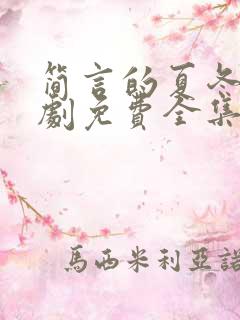 简言的夏冬
劇免費全集
馬西米利亞諾